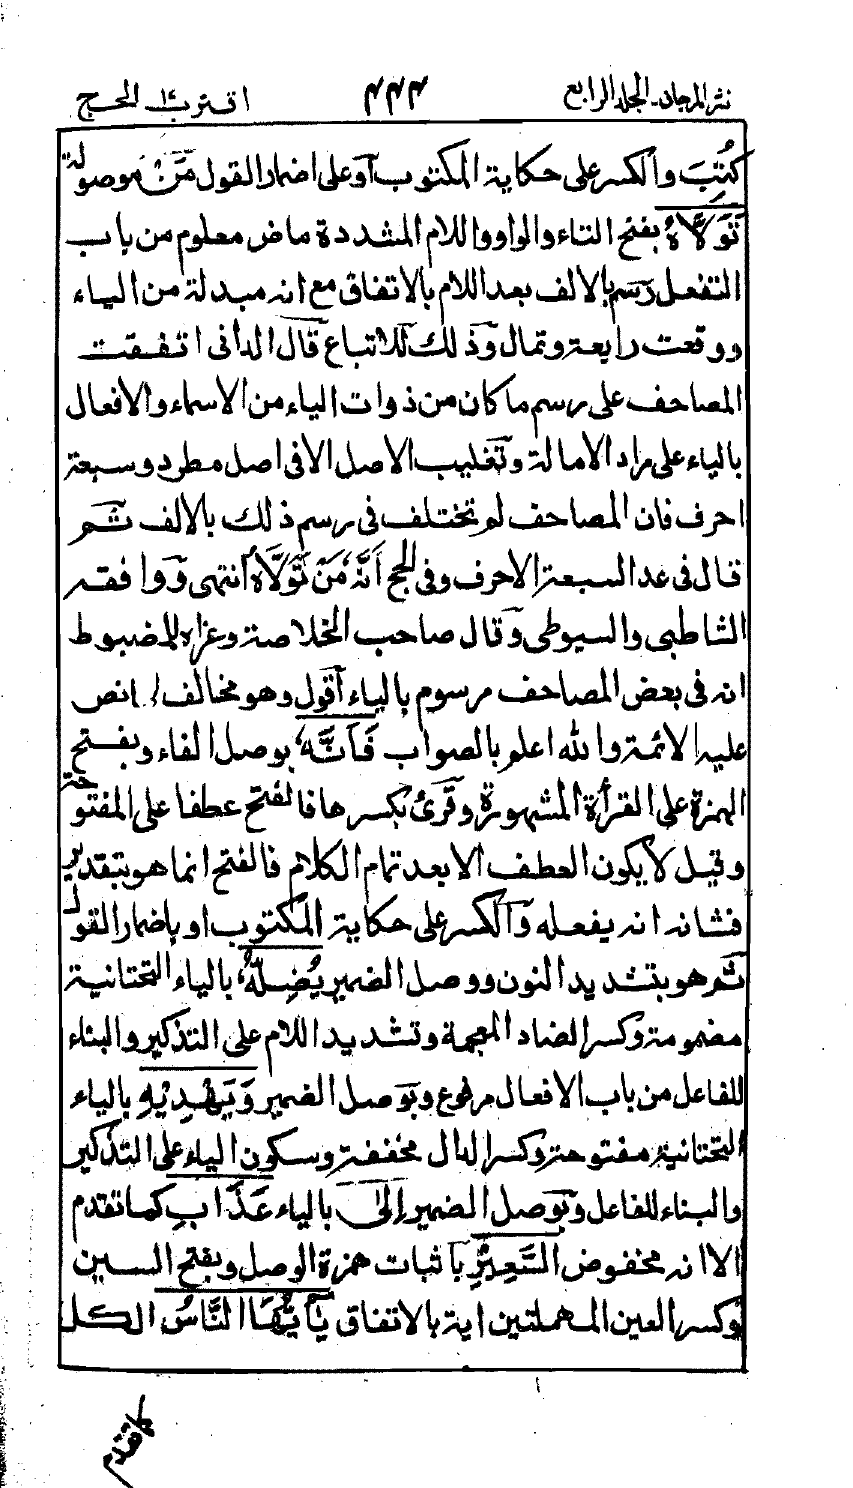 نثر المرجان - المجلد الرابع
٤٤٤
اقترب ١٧ الحج
كُتِبَ والكسر على حكاية المكتوب أو على اضمار القول مَنْ موصولة
تَوَلَّاهُ بفتح التاء والواو واللام المشددة ماض معلوم من باب
التفعل رسم بالالف بعد اللام بالاتفاق مع انه مبدلة من الياء
ووقعت رابعة وتمال وذلك للاتباع قال الدانى اتفقت
المصاحف على رسم ما كان من ذوات الياء من الاسماء والافعال
بالياء على مراد الامالة وتغليب الاصل الا فى اصل مطرد وسبعة
احرف فان المصاحف لم تختلف فى رسم ذلك بالالف ثم
قال فى عد السبعة الاحرف وفى الحج أَنَّهُ مَنْ تَوَلَّاهُ انتهى ووافقه
الشاطبى والسيوطى وقال صاحب الخلاصة وعزاه للمضبوط
انه فى بعض المصاحف مرسوم بالياء أقول وهو مخالف لما نص
عليه الائمة والله اعلم بالصواب فَأَنَّهُ بوصل الفاء وبفتح
الهمزة على القرأة المشهورة وقرئ بكسرها فالفتح عطفا على المفتوحة
وقيل لا يكون العطف الا بعد تمام الكلام فالفتح انما هو بتقدير
فشانه انه يفعله والكسر على حكاية المكتوب او باضمار القول
ثم هو بتشديد النون ووصل الضمير يُضِلُّهُ بالياء التحتانية
مضمومة وكسر الضاد المعجمة وتشديد اللام على التذكير والبناء
للفاعل من باب الافعال مرفوع وبوصل الضمير وَيَهْدِيْهِ بالياء
التحتانية مفتوحة وكسر الدال مخففة وسكون الياء على التذكير
والبناء للفاعل وبوصل الضمير إِلَىٰ بالياء عَذَابِ كما تقدم
الا انه مخفوض السَّعِيْرِ باثبات همزة الوصل وبفتح السين
وكسر العين المهملتين اية بالاتفاق يٰٓأَيُّهَا النَّاسُ الكل
كما تقدم